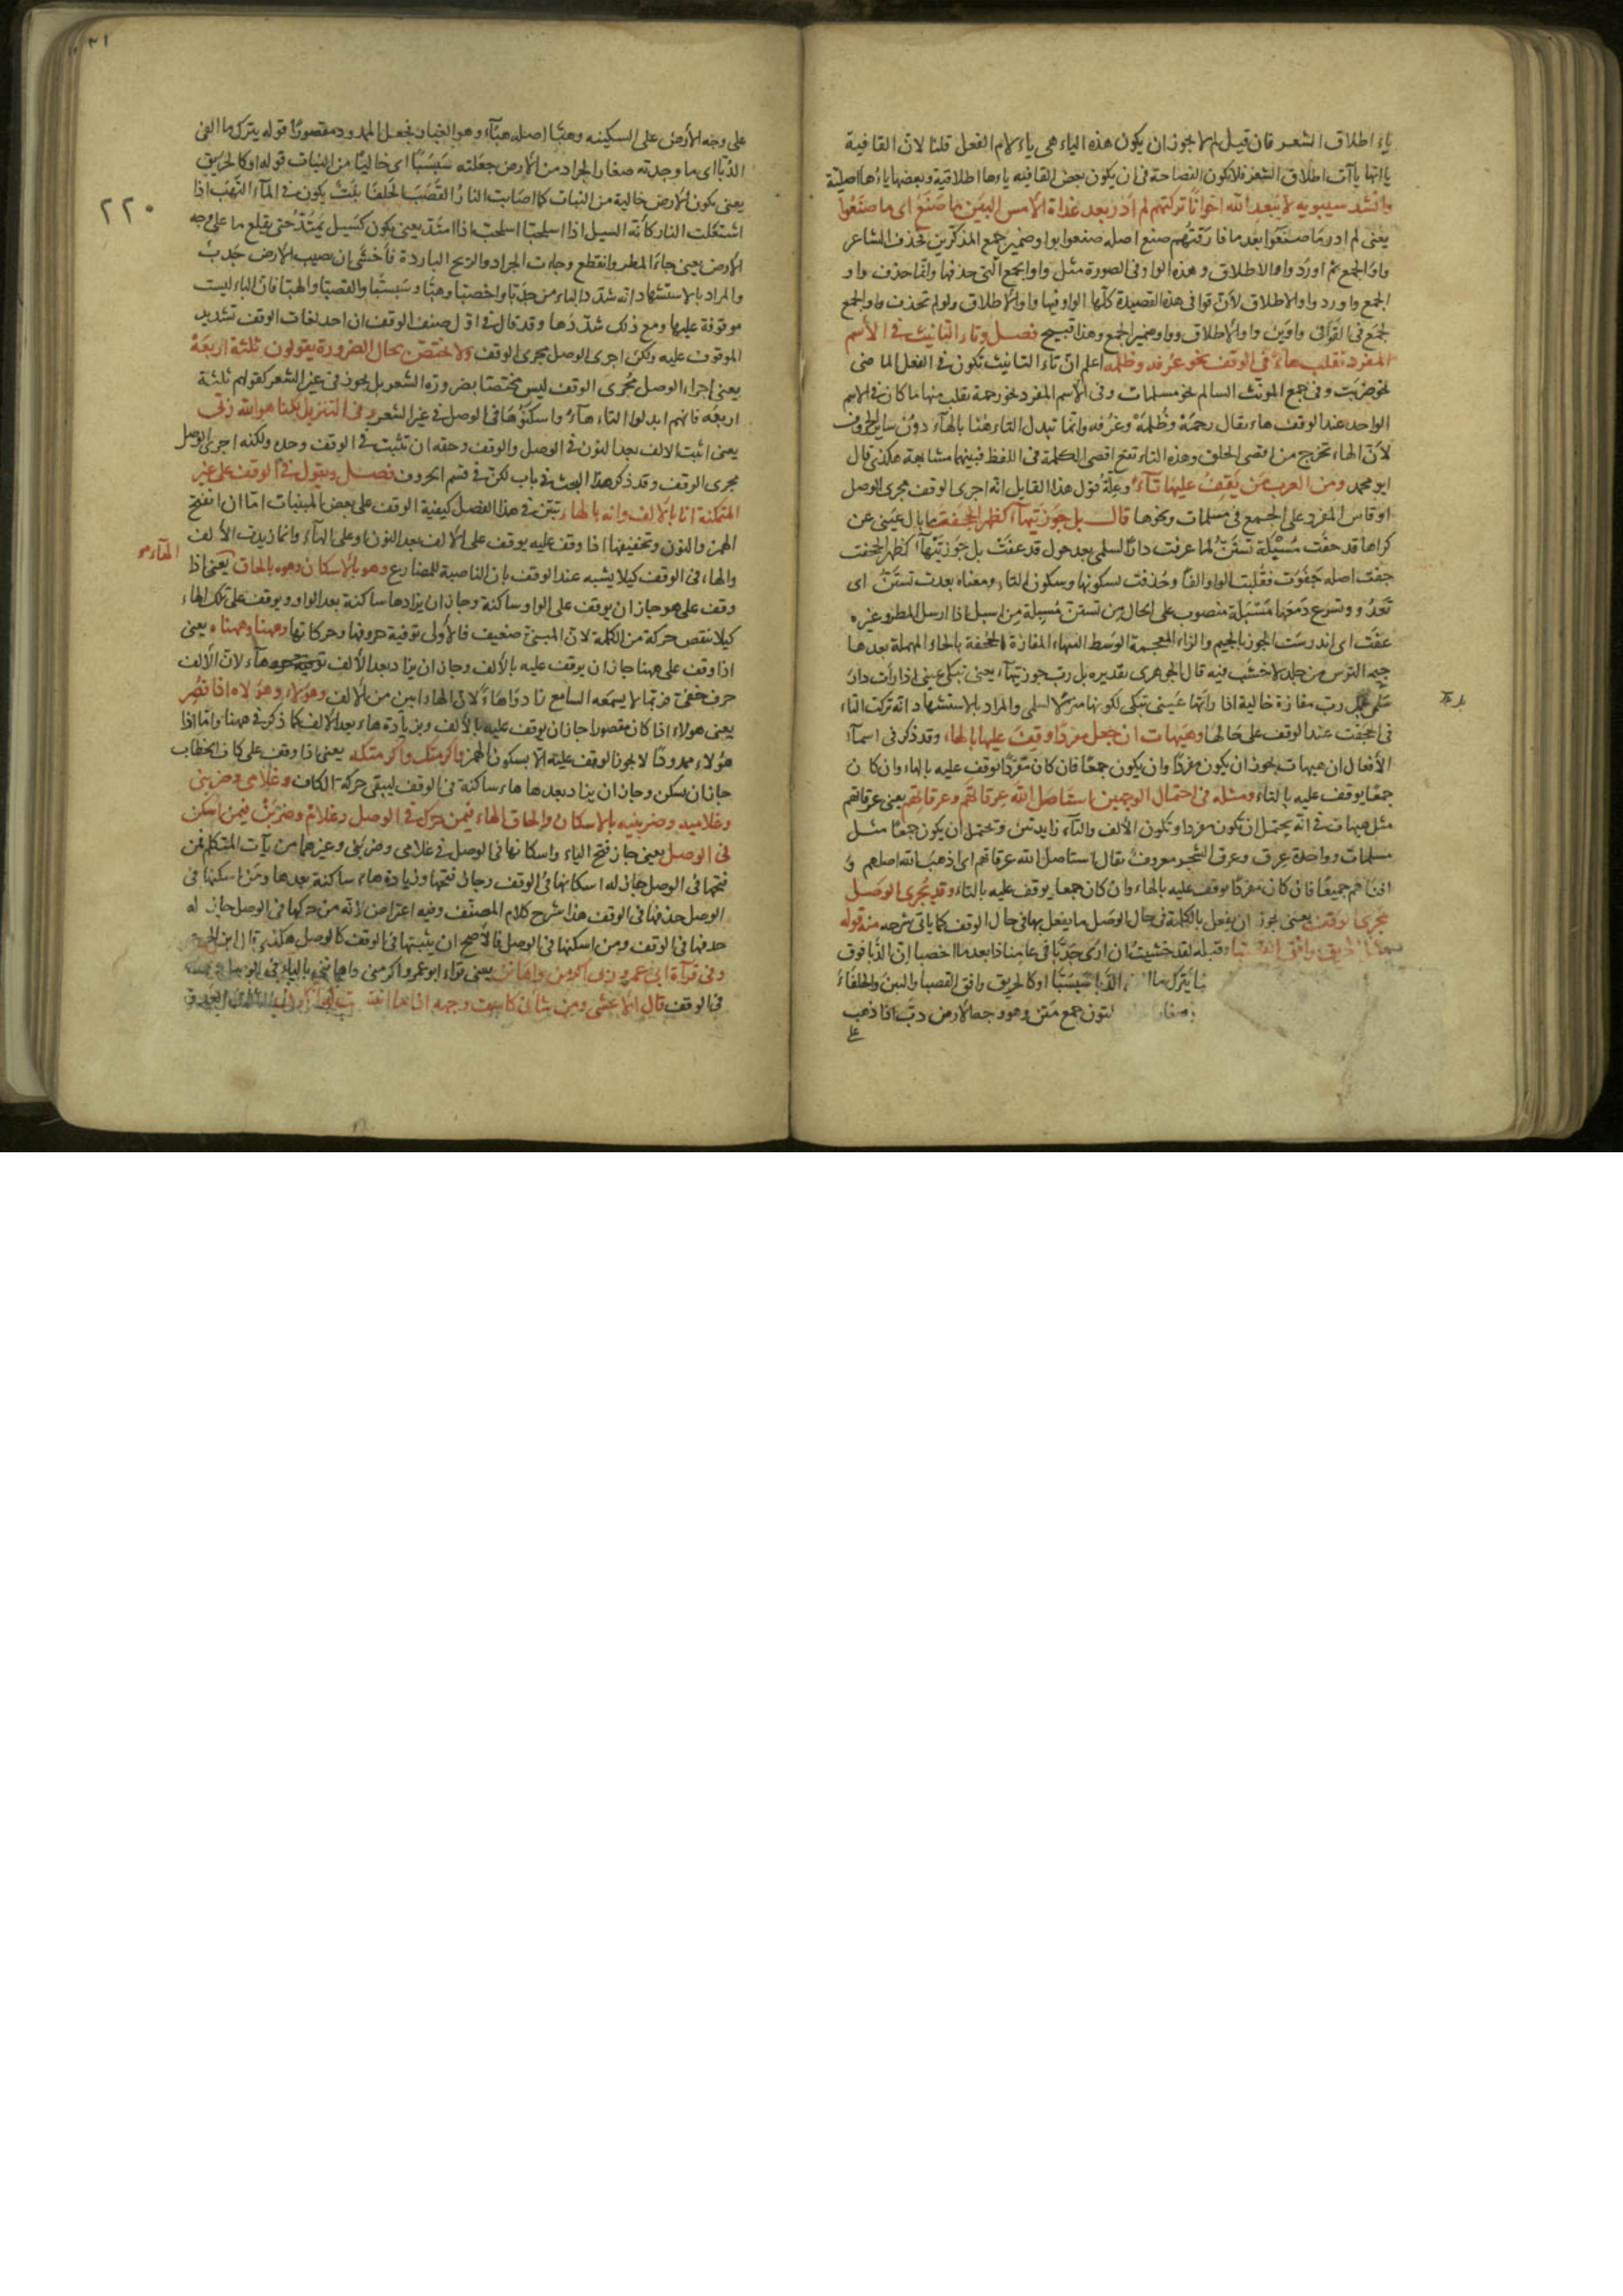 ياء اطلاق الشعر فان قيل لم لا يجوز ان يكون هذه الياء هى ياء لام الفعل قلنا لان القافية
ياءاتها ياآت اطلاق الشعر فلا يكون الفصاحة فى ان يكون بعض القافيه ياءها اطلاقية وبعضها ياءها اصلية
وانشد سيبويه لا يبعد الله اخوانا تركتهم لم ادر بعد غداة الامس البين ما صنع اى ما صنعوا
يعنى لم ادر ما صنعوا بعد ما فارقتهم صنع اصله صنعوا بواو ضمير جمع المذكرين فحذف الشاعر
واو الجمع ثم اورد واو الاطلاق وهذه الواو فى الصورة مثل واو الجمع التى حذفها وانما حذف واو
الجمع واورد واو الاطلاق لان قوافى هذه القصيدة كلها الواو فيها واو الاطلاق ولو لم تحذف واو الجمع
لجمع فى القوافى واوين واو الاطلاق وواو ضمير الجمع وهذا قبيح فصل وتاء التانيث فى الاسم
المفرد تقلب هاء فى الوقف نحو غرفه وظلمه اعلم ان تاء التانيث تكون فى الفعل الماضى
نحو ضربت وفى جمع المونث السالم نحو مسلمات وفى الاسم المفرد نحو رحمة تقلب منها ما كان فى الاسم
الواحد عند الوقف هاء يقال رحمه وظلمه وغرفه وانما تبدل التاء هنا بالهاء دون سائر الحروف
لان الهاء تخرج من اقصى الحلق وهذه التاء تقع اقصى الكلمة فى اللفظ فبينهما مشابهة هكذا قال
ابو محمد ومن العرب من يقف عليها تاء وعلة قول هذا القايل انه اجرى الوقف مجرى الوصل
او قاس المفرد على الجمع فى مسلمات ونحوها قال بل جوز تيهاء كظهر الحجفت ما بال عينى عن
كراها قد جفت مسبلة تستن لما عرفت دارا لسلمى بعد حول قد عفت بل جوز تيهاء كظهر الحجفت
جفت اصله جفوت فقلبت الواو الفا وحذفت لسكونها وسكون التاء ومعناه بعدت تستن اى
تعدو وتسرع دمعها مسبلة منصوب على الحال من تستن مسبلة من اسبل اذا ارسل المطر وغيره
عفت اى اندرست الجوز بالجيم والزاء المعجمة الوسط التيهاء المفازة الحجفة بالحاء المهملة بعدها
جيم الترس من جلد لا خشب فيه قال الجوهرى تقديره بل رب جوز تيهاء يعنى تبكى عينى اذا رات دار
سلمى بل رب مفازة خالية اذا راتها عينى تبكى لكونها منزلا لسلمى والمراد بالاستشهاد انه تركت التاء
فى الحجفت عند الوقف على حالها وهيهات ان جعل مفردا وقف عليها بالهاء وقد ذكر فى اسماء
الافعال ان هيهات يجوز ان يكون مفردا وان يكون جمعا فان كان مفردا يوقف عليه بالهاء وان كان
جمعا يوقف عليه بالتاء ومثله فى احتمال الوجهين استاصل الله عرقاتهم وعرقاتهم يعنى عرقاتهم
مثل هيهات فى انه يحتمل ان تكون مفردا وتكون الالف والتاء زايدتين وتحتمل ان يكون جمعا مثل
مسلمات وواحدة عرق وعرق الشجر معروف يقال استاصل الله عرقاتهم اى اذهب الله اصلهم و
افناهم جميعا فان كان مفردا يوقف عليه بالهاء وان كان جمعا يوقف عليه بالتاء وقد يجرى الوصل
مجرى الوقف يعنى يجوز ان يفعل بالكلمة فى حال الوصل ما يفعل بها فى حال الوقف كما ياتى شرحه منه قوله
الحريق وافق القصبا وقبله لقد خشيت ان ارى جدبا فى عامنا ذا بعد ما اخصبا ان الدبا فوق
يترك ما الدبا سبسبا او كالحريق وافق القصبا والتبن والحلفاء
المتون جمع متن وهو وجه الارض دب اذا ذهب
على
٢٢٠
على وجه الارض على السكينه وهبا اصله هباء وهو الغبار فجعل الممدود مقصورا قوله يترك ما القى
الدبا اى ما وجدته صغار الجراد من الارض جعلته سبسبا اى خاليا من النبات قوله او كالحريق
يعنى يكون الارض خالية من النبات كما اصابت النار القصبا الحلفا نبت يكون فى الماء التهب اذا
اشتعلت النار كانه السيل اذا اسلحبا اسلحب اذا امتد يعنى يكون كسيل يمتد حتى يقلع ما على وجه
الارض يعنى جاء المطر وانقطع وجاءت الجراد والريح الباردة فاخشى ان يصيب الارض جدب
والمراد بالاستشهاد انه شدد الباء من جدبا واخصبا وهبا وسبسبا والقصبا والهبا فان الباء ليست
موقوفة عليها ومع ذلك شددها وقد قال فى اول صنف الوقف ان احد لغات الوقف تشديد
الموقوف عليه ولكن اجرى الوصل مجرى الوقف ولا يختص بحال الضرورة يقولون ثلثة اربعة
يعنى اجراء الوصل مجرى الوقف ليس مختصا بضرورة الشعر بل يجوز فى غير الشعر كقولهم ثلثة
اربعه فانهم ابدلوا التاء هاء واسكنوها فى الوصل فى غير الشعر وفى التنزيل لكنا هو الله ربى
يعنى اثبت الالف بعد النون فى الوصل والوقف وحقه ان تثبت فى الوقف وحده ولكنه اجرى الوصل
مجرى الوقف وقد ذكر هذا البحث فى باب لكن فى قسم الحروف فصل ويقول فى الوقف على غير
المتمكنة انا بالالف وانه بالهاء تبين فى هذا الفصل كيفية الوقف على بعض المبنيات اما ان انفتح
الهمزة والنون وتخفيفها اذا وقف عليه يوقف على الالف بعد النون او على الهاء وانما زيدت الالف
والهاء فى الوقف كيلا يشبه عند الوقف بان الناصبة للمضارع وهو بالاسكان وهوه بالحاق الهاء يعنى اذا
وقف على هو جاز ان يوقف على الواو ساكنة وجاز ان يزاد ها ساكنة بعد الواو ويوقف على تلك الهاء
كيلا ينقص حركة من الكلمة لان المبنى ضعيف فالاولى توفية حروفها وحركاتها وههنا وههناه يعنى
اذا وقف على ههنا جاز ان يوقف عليه بالالف وجاز ان يزاد بعد الالف هاء لان الالف
حرف خفى فربما لا يسمعه السامع زادوا هاء لان الهاء ابين من الالف وهؤلاء وهؤلاه اذا قصر
يعنى هولاء اذا كان مقصورا جاز ان يوقف عليه بالالف وبزيادة هاء بعد الالف كما ذكر فى ههنا واما اذا
هؤلاء ممدودا لا يجوز الوقف عليه الا بسكون الهمز واكرمتك واكرمتكه يعنى اذا وقف على كاف الخطاب
جاز ان يسكن وجاز ان يزاد بعدها هاء ساكنة فى الوقف ليبقى حركة الكاف وغلامى وضربنى
وغلاميه وضربنيه بالاسكان والحاق الهاء فيمن حرك فى الوصل وغلام وضربن فيمن اسكن
فى الوصل يعنى جاز فتح الياء واسكانها فى الوصل فى غلامى وضربنى وغيرهما من يآت المتكلم فمن
فتحها فى الوصل جاز له اسكانها فى الوقف وجاز فتحها وزيادة هاء ساكنة بعدها ومن اسكنها فى
الوصل حذفها فى الوقف هذا شرح كلام المصنف وفيه اعتراض لانه من حركها فى الوصل جاز له
حذفها فى الوقف ومن اسكنها فى الوصل فالاصح ان يثبتها فى الوقف كالوصل هكذا قال ابن
وفى قراءة ابى عمرو ربى اكرمن واهانن يعنى قراء ابو عمرو اكرمنى واهاننى بالياء فى الوصل
فى الوقف قال الاعشى ومن شانئ كاسف وجهه اذا ما انتسبت